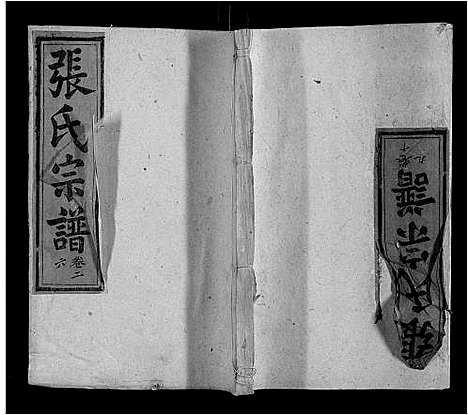 張氏宗譜
卷二
六
張氏宗譜